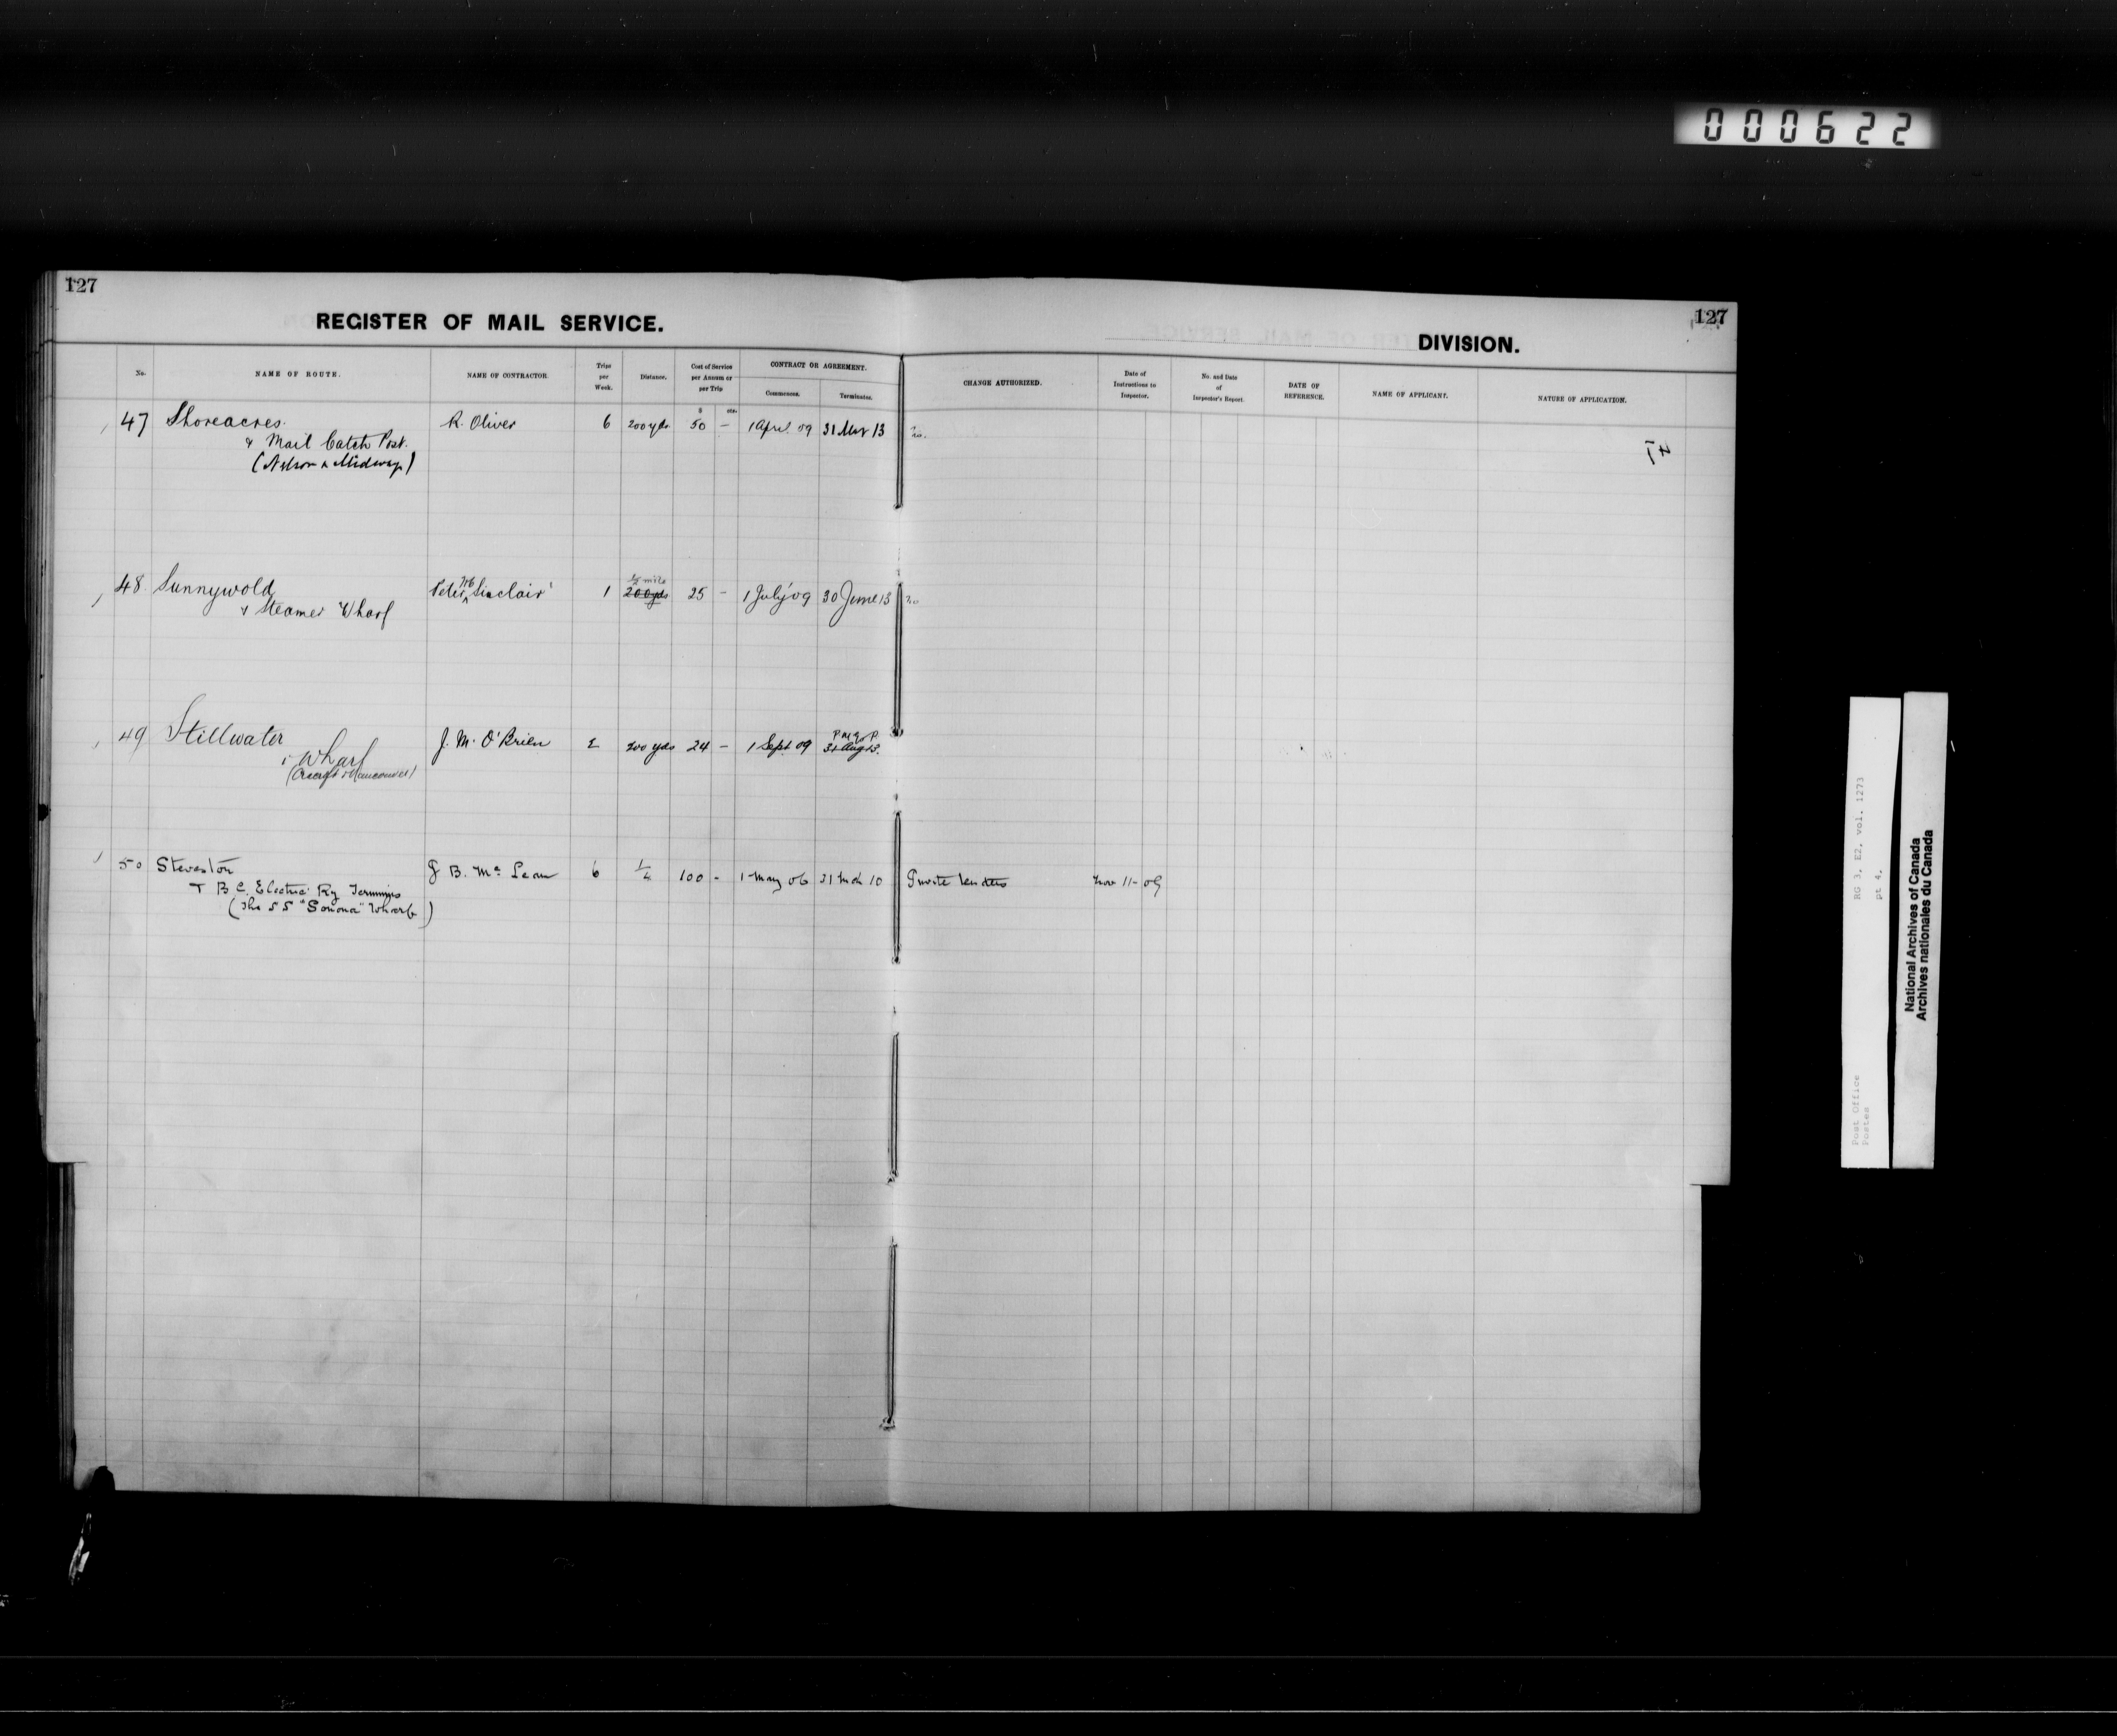 000622
127
127
REGISTER OF MAIL SERVICE.
DIVISION.
No.
NAME OF ROUTE.
NAME OF CONTRACTOR.
Trips per Week.
Distance.
Cost of Service per Annum or per Trip
$ cts.
CONTRACT OR AGREEMENT.
Commences.
Terminates.
CHANGE AUTHORIZED.
Date of Instructions to Inspector.
No. and Date of Inspector's Report.
DATE OF REFERENCE.
NAME OF APPLICANT.
NATURE OF APPLICATION.
47 Shoreacres. R. Oliver 6 200 yds 50 - 1 April 09 31 Mar 13
& Mail Catch Post.
(Nelson & Midway)
48 Sunnywold Peter Sinclair 1 ½ mile 200 yds 25 - 1 July '09 30 June 13
& Steamer Wharf
49 Stillwater J. M. O'Brien 2 200 yds 24 - 1 Sept 09 31 Aug 13.
P M G P.
& Wharf
Vancouver)
50 Steveston J B. Mc Lean 6 ¼ 100 - 1 May 06 31 Mch 10 Private tenders Nov 11-09
& B C. Electric Ry Terminus
(The S S "Sonoma" Wharf)
Post Office RG 3, E2, vol. 1273
Postes pt 4,
National Archives of Canada
Archives nationales du Canada